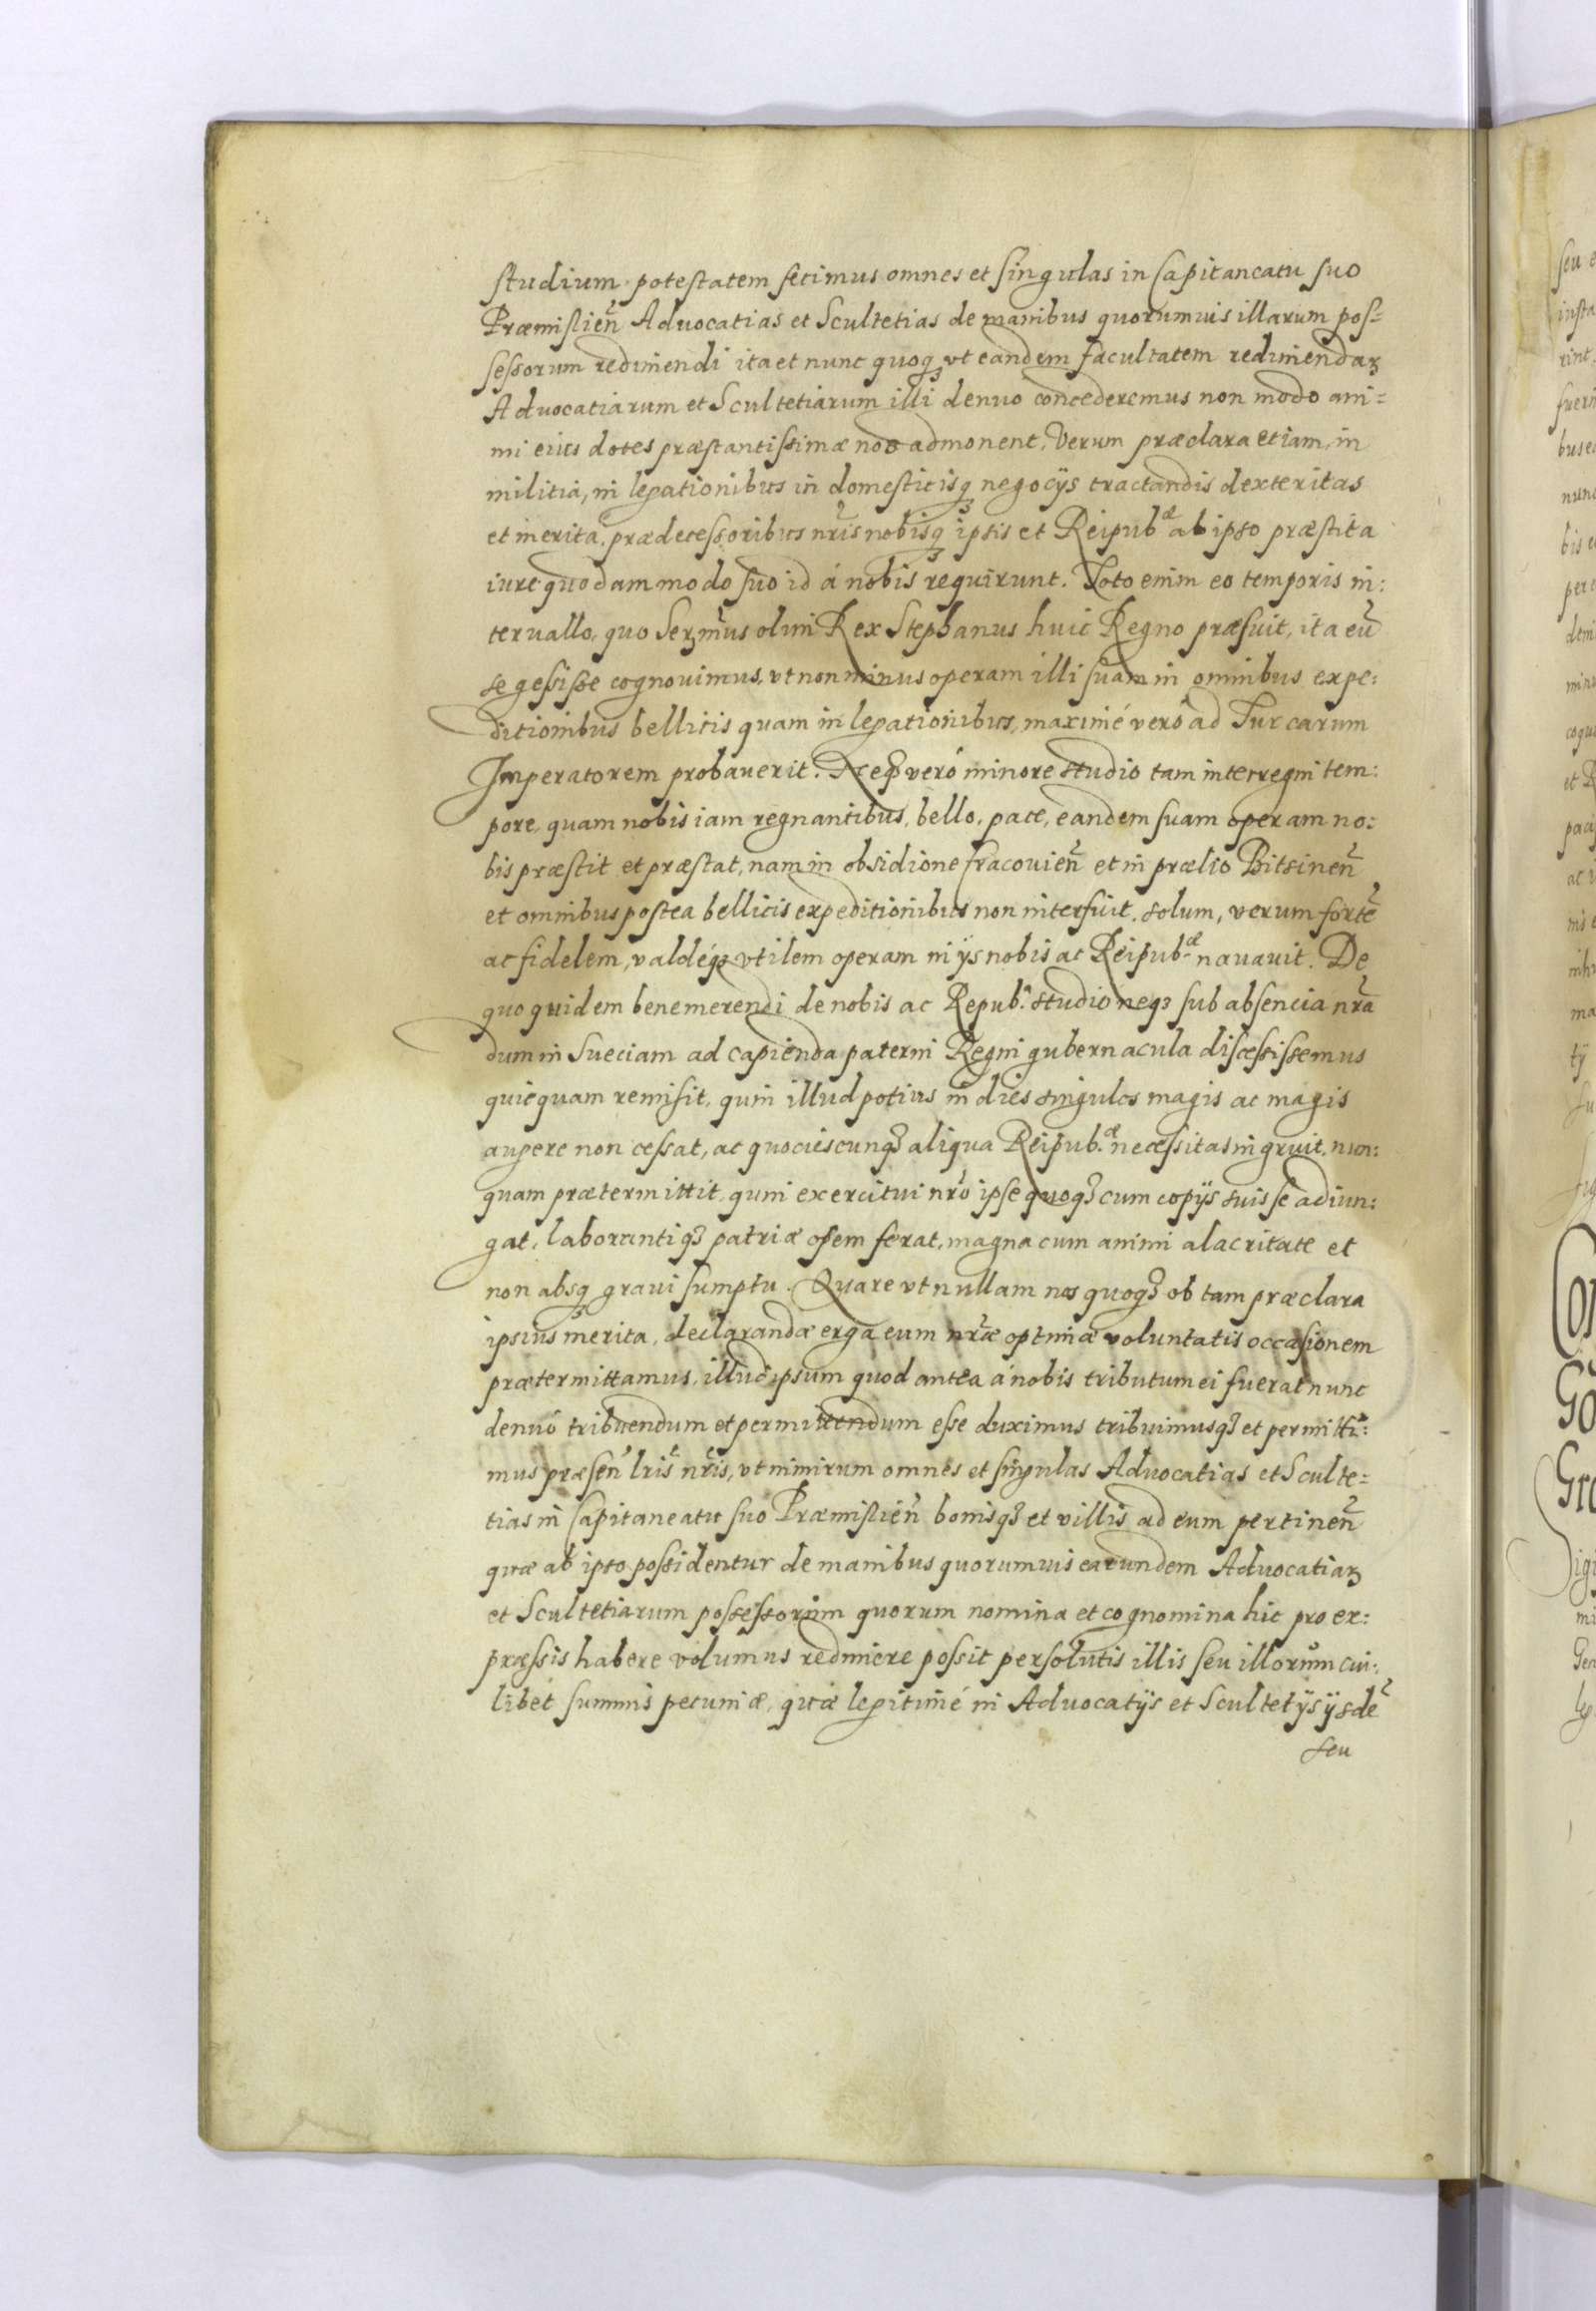 studium potestatem fecimus omnes et singulas in Capitaneatu suo
Præmislień Aduocatias et Scultetias de manibus quorumuis illarum pos=
sessorum redimendi ita et nunc quoq₃ vt eandem facultatem redimendaꝝ
Aduocatiarum et Scultetiarum illi denuo concederemus non modo ani=
mi eius dotes præstantissimæ nos admonent, Verum præclara etiam, in
militia, in legationibus in domesticisq₃ negocÿs tractandis dexteritas
et merita, prædecessoribus nr̃is nobisq₃ ipsis et Reipubᵃᵉ ab ipso præstita
iure quodammodo suo id á nobis requirunt. Toto enim eo temporis in:
teruallo, quo Serm̃us olim Rex Stephanus huic Regno præfuit, ita eũ
se gessisse cognouimus, vt non minus operam illi suam in omnibus expe:
ditionibus bellicis quam in legationibus, maximé veró ad Turcarum
Imperatorem probauerit. Neq₃ veró minore studio tam interregni tem:
pore, quam nobis iam regnantibus, bello, pace, eandem suam operam no:
bis præstit et præstat, nam in obsidione Cracouieñ et in prælio Bitsineñ
et omnibus postea bellicis expeditionibus non interfuit solum, verum fortẽ
ac fidelem, valdéq₃ vtilem operam in ÿs nobis ac Reipub.ᵃᵉ nauauit. De
quo quidem benemerendi de nobis ac Repub. studio neq₃ sub absencia nr̃a
dum in Sueciam ad capienda paterni Regni gubernacula discessissemus
quicquam remisit, quin illud potius in dies singulos magis ac magis
augere non cessat, ac quociescunq₃ aliqua Reipub.ᵃᵉ necessitas ingruit, nun:
quam prætermittit, quin exercitui nr̃o ipse quoq₃ cum copÿs suis se adiun:
gat, laborantiq₃ patriæ opem ferat, magna cum animi alacritate et
non absq₃ graui sumptu. Quare vt nullam nos quoq₃ ob tam præclara
ipsius merita, declarandæ erga eum nr̃æ optimæ voluntatis occasionem
prætermittamus, illud ipsum quod antea á nobis tributum ei fuerat nunc
denuó tribuendum et permittendum esse duximus tribuimusq₃ et permitti:
mus præseñ lr̃is nr̃is, vt nimirum omnes et singulas Aduocatias et Sculte=
tias in Capitaneatu suo Præmislień bonisq₃ et villis ad eum pertineñ
quæ ab ipso possidentur de manibus quorumuis earundem Aduocatiaꝝ
et Scultetiarum possessorum quorum nomina et cognomina hic pro ex:
præssis habere volumus redimere possit persolutis illis seu illorum cui:
libet summis pecuniæ, quæ legitimé in Aduocatÿs et Scultetÿs ÿsdẽ
seu